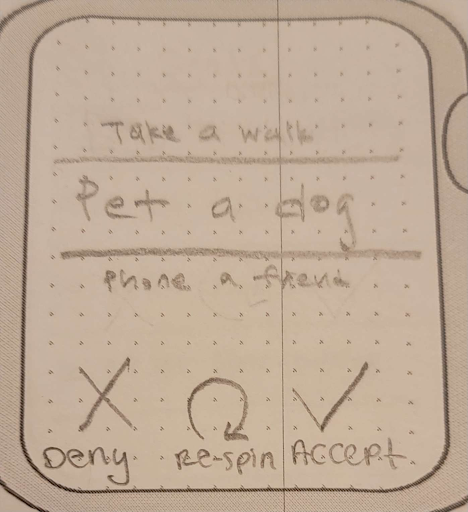 Take a walk
Pet a dog
Phone a friend
Deny Re-spin Accept